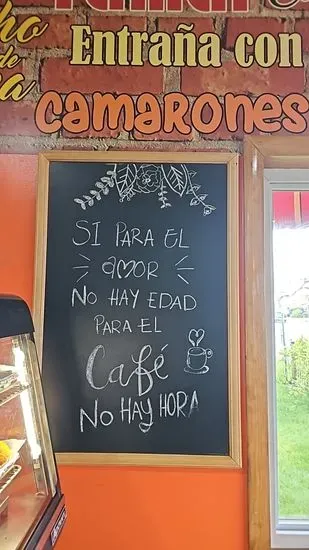 Entraña con
camarones
SI PARA EL
amor
NO HAY EDAD
PARA EL
Café
NO HAY HORA